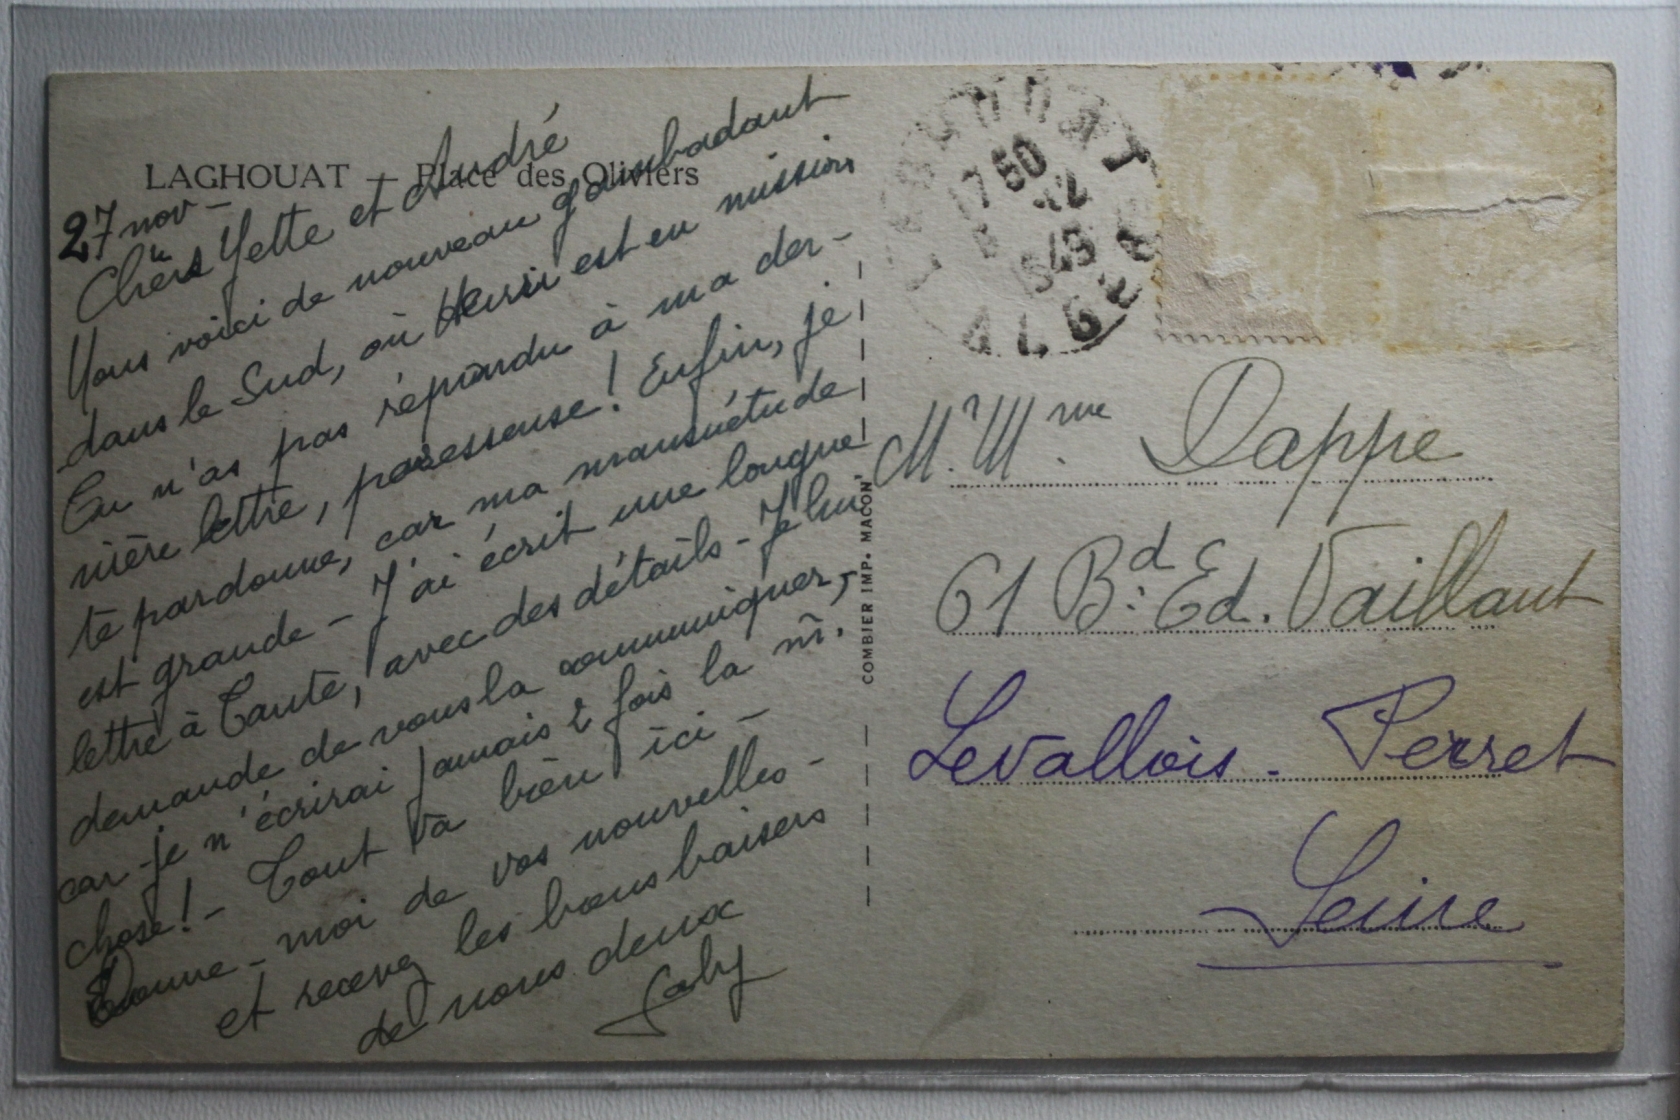 LAGHOUAT — Place des Oliviers
27 nov -
Chers Yette et André
Nous voici de nouveau
dans le Sud, où Henri est en mission
Tu n'as pas répondu à ma der-
nière lettre, paresseuse! Enfin, je
te pardonne, car ma mansuétude
est grande - J'ai écrit une longue
lettre à Tante, avec des détails - Je lui
demande de vous la communiquer,
car je n'écrirai jamais 2 fois la m̂.
chose! - Tout va bien ici -
Donne-moi de vos nouvelles -
et recevez les bons baisers
de nous deux
Gaby
COMBIER IMP. MACON
LAGHOUAT
17 50
12
1949
ALGER
M. Mme Dappe
61 Bd. Ed. Vaillant
Levallois - Perret
Seine